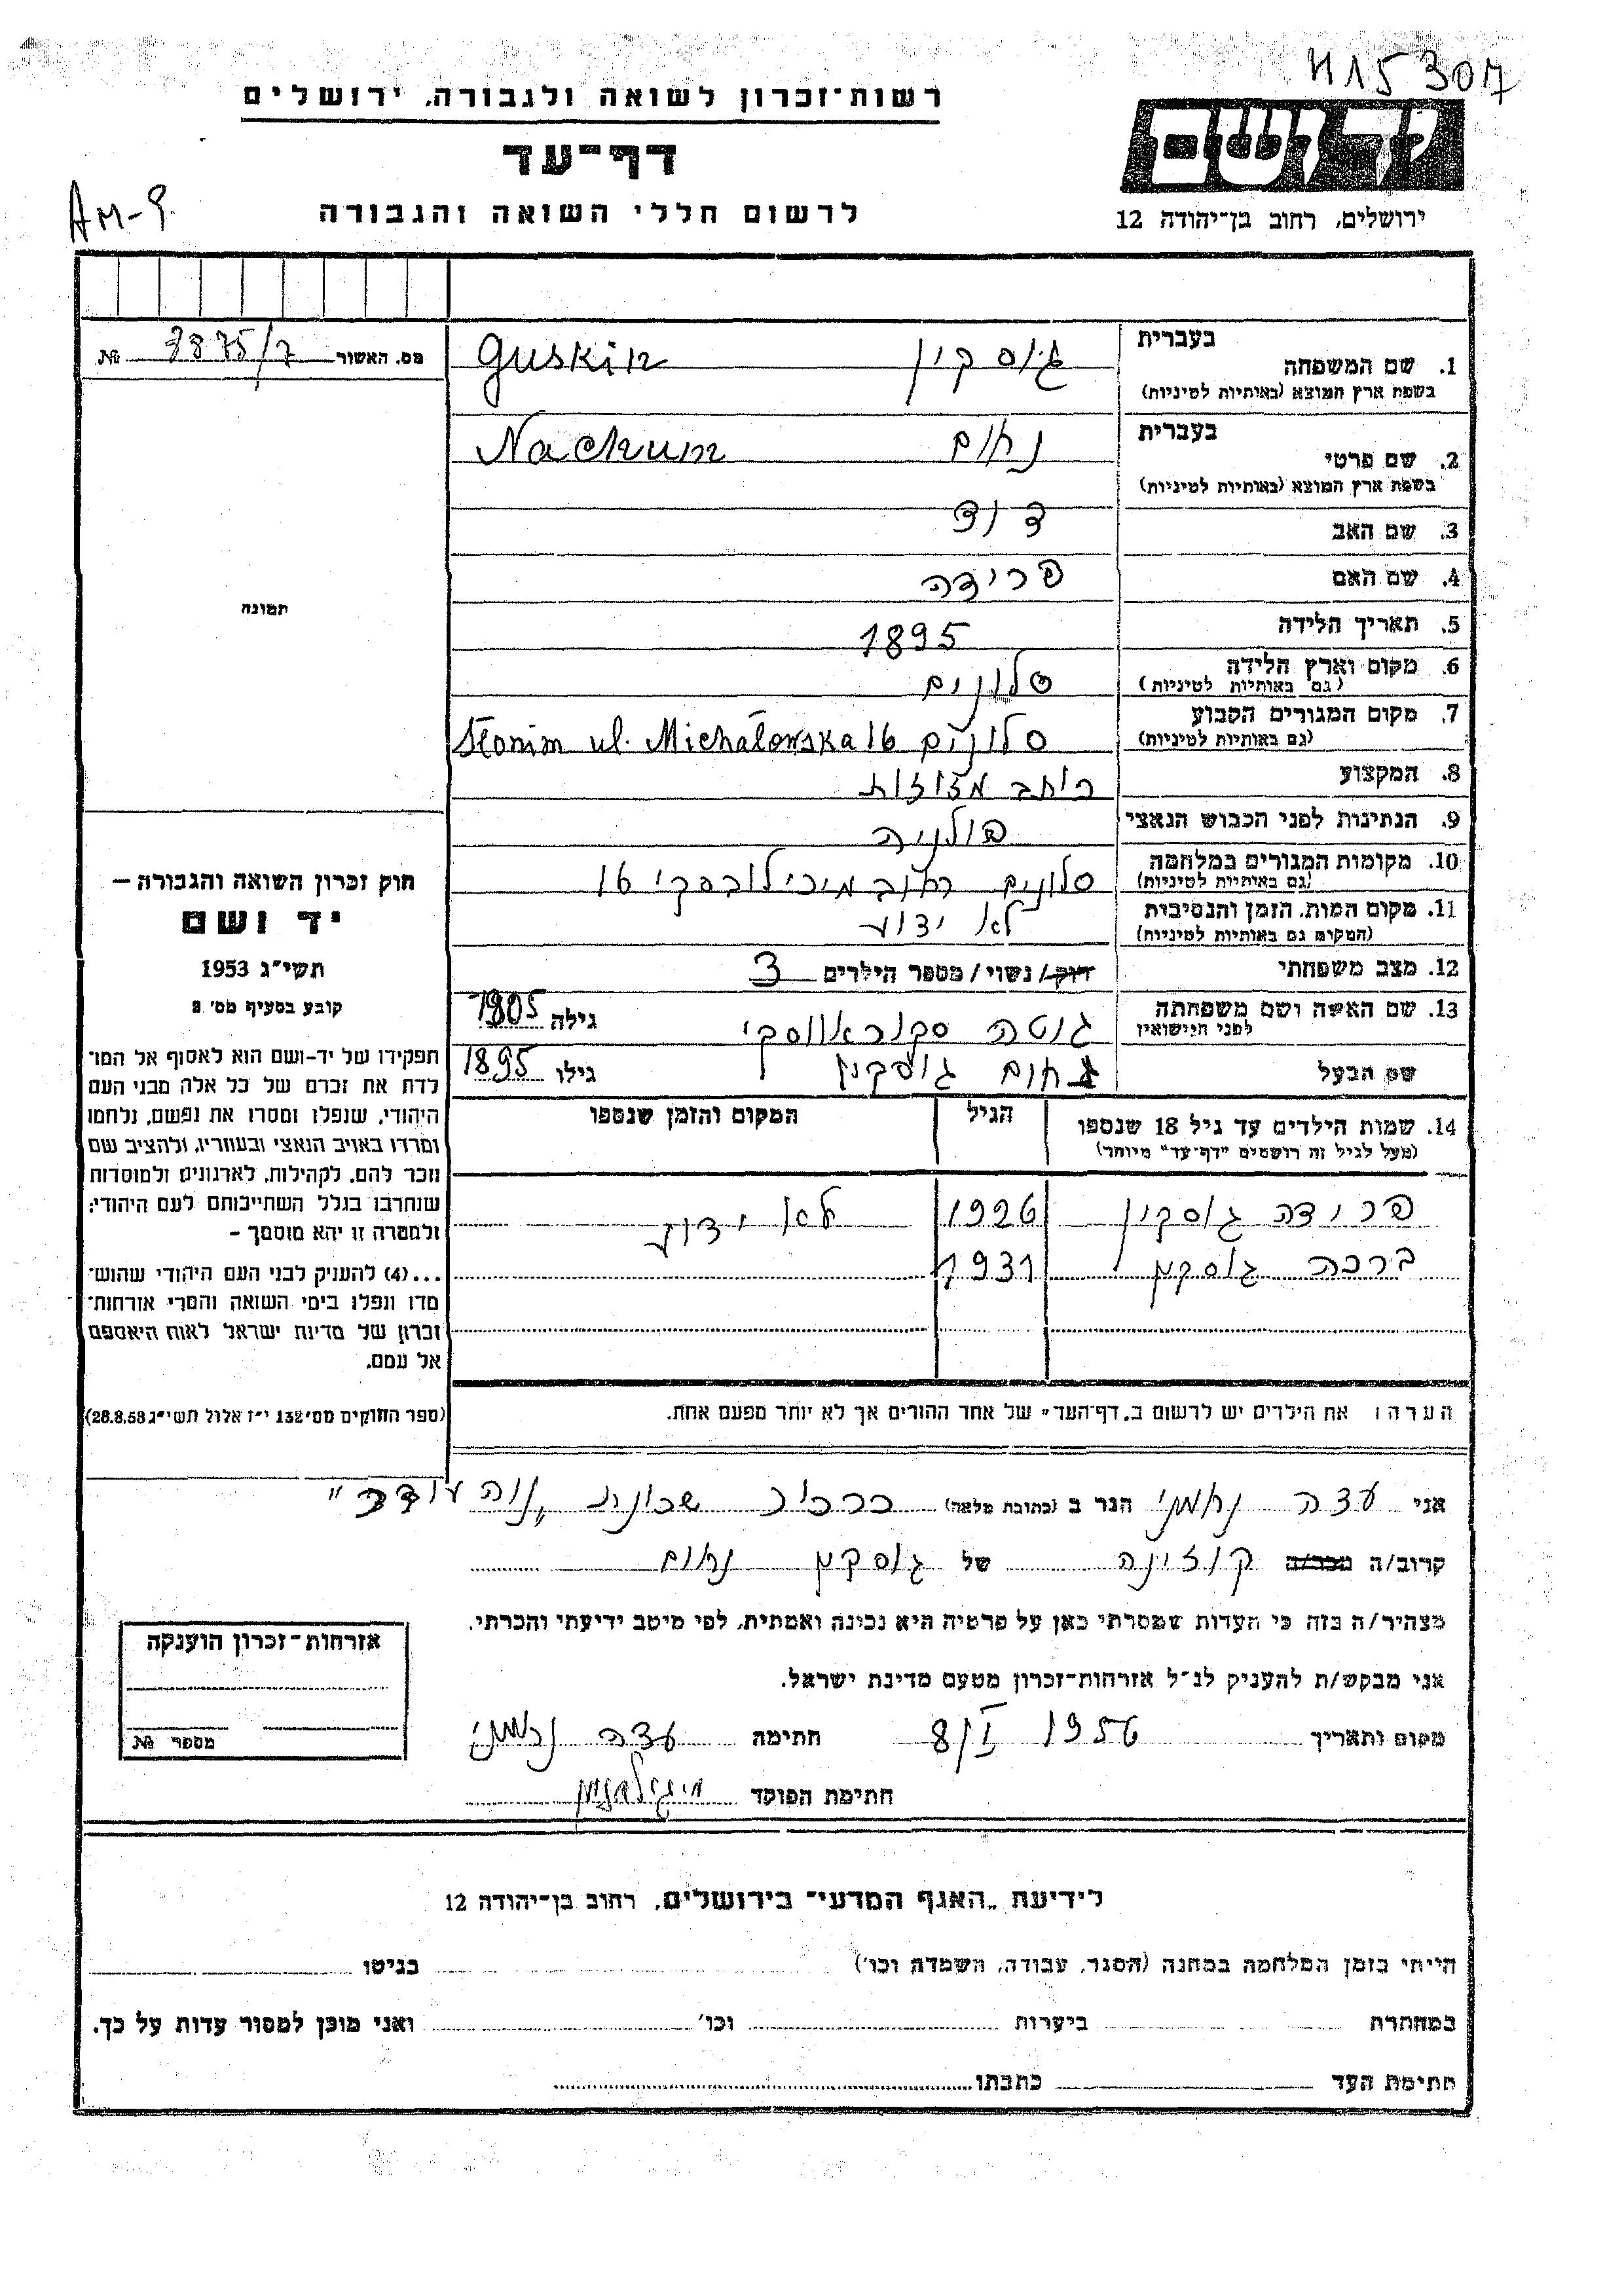 H15 307
רשות־זכרון לשואה ולגבורה, ירושלים
דף־עד
לרשום חללי השואה והגבורה
יד ושם
ירושלים, רחוב בן־יהודה 12
AM-9.
מס. האשור 7875/7 №
בעברית
1. שם המשפחה גוסקין Guskin
בשפת ארץ המוצא (באותיות לטיניות)
בעברית
2. שם פרטי נחום Nachum
בשפת ארץ המוצא (באותיות לטיניות)
3. שם האב דוד
4. שם האם פרידה
5. תאריך הלידה 1895
6. מקום וארץ הלידה סלונים
(גם באותיות לטיניות)
7. מקום המגורים הקבוע סלונים Słonim ul. Michałowska 16
(גם באותיות לטיניות)
8. המקצוע כותב מזוזות
9. הנתינות לפני הכבוש הנאצי פולניה
10. מקומות המגורים במלחמה סלונים רחוב מיכילובסקי 16
(גם באותיות לטיניות)
11. מקום המות, הזמן והנסיבות לא ידוע
(המקום גם באותיות לטיניות)
12. מצב משפחתי רווק/נשוי/מספר הילדים 3
13. שם האשה ושם משפחתה גוטה גילה 1905
לפני הנישואין
שם הבעל נחום גוסקין גילו 1895
14. שמות הילדים עד גיל 18 שנספו הגיל המקום והזמן שנספו
(מעל לגיל זה רושמים "דף־עד" מיוחד)
פרידה גוסקין 1926 לא ידוע
ברכה גוסקין 1931
הערה: את הילדים יש לרשום ב„דף־העד" של אחד ההורים אך לא יותר מפעם אחת.
תמונה
חוק זכרון השואה והגבורה –
יד ושם
תשי״ג 1953
קובע בסעיף מס׳ 2
תפקידו של יד-ושם הוא לאסוף אל המו־
לדת את זכרם של כל אלה מבני העם
היהודי, שנפלו ומסרו את נפשם, נלחמו
ומרדו באויב הנאצי ובעוזריו, ולהציב שם
וזכר להם, לקהילות, לארגונים ולמוסדות
שנחרבו בגלל השתייכותם לעם היהודי;
ולמטרה זו יהא מוסמך –
...(4) להעניק לבני העם היהודי שהוש־
מדו ונפלו בימי השואה והמרי אזרחות־
זכרון של מדינת ישראל לאות היאספם
אל עמם.
(ספר החוקים מס׳ 132 י״ז אלול תשי״ג 28.8.53)
אני עדה נחמני הגר ב (כתובת מלאה) כרכור שכונת „נוה עודד"
קרוב/ה מכר/ה קוזינה של גוסקין נחום
מצהיר/ה בזה כי העדות שמסרתי כאן על פרטיה היא נכונה ואמתית, לפי מיטב ידיעתי והכרתי.
אני מבקש/ת להעניק לנ״ל אזרחות־זכרון מטעם מדינת ישראל.
מקום ותאריך 8/I 1956 חתימה עדה נחמני
חתימת הפוקד
אזרחות־זכרון הוענקה
מספר №
לידיעת „האגף המדעי״ בירושלים, רחוב בן־יהודה 12
הייתי בזמן המלחמה במחנה (הסגר, עבודה, השמדה וכו׳) בגיטו
במחתרת ביערות וכו׳ ואני מוכן למסור עדות על כך.
חתימת העד כתבתו